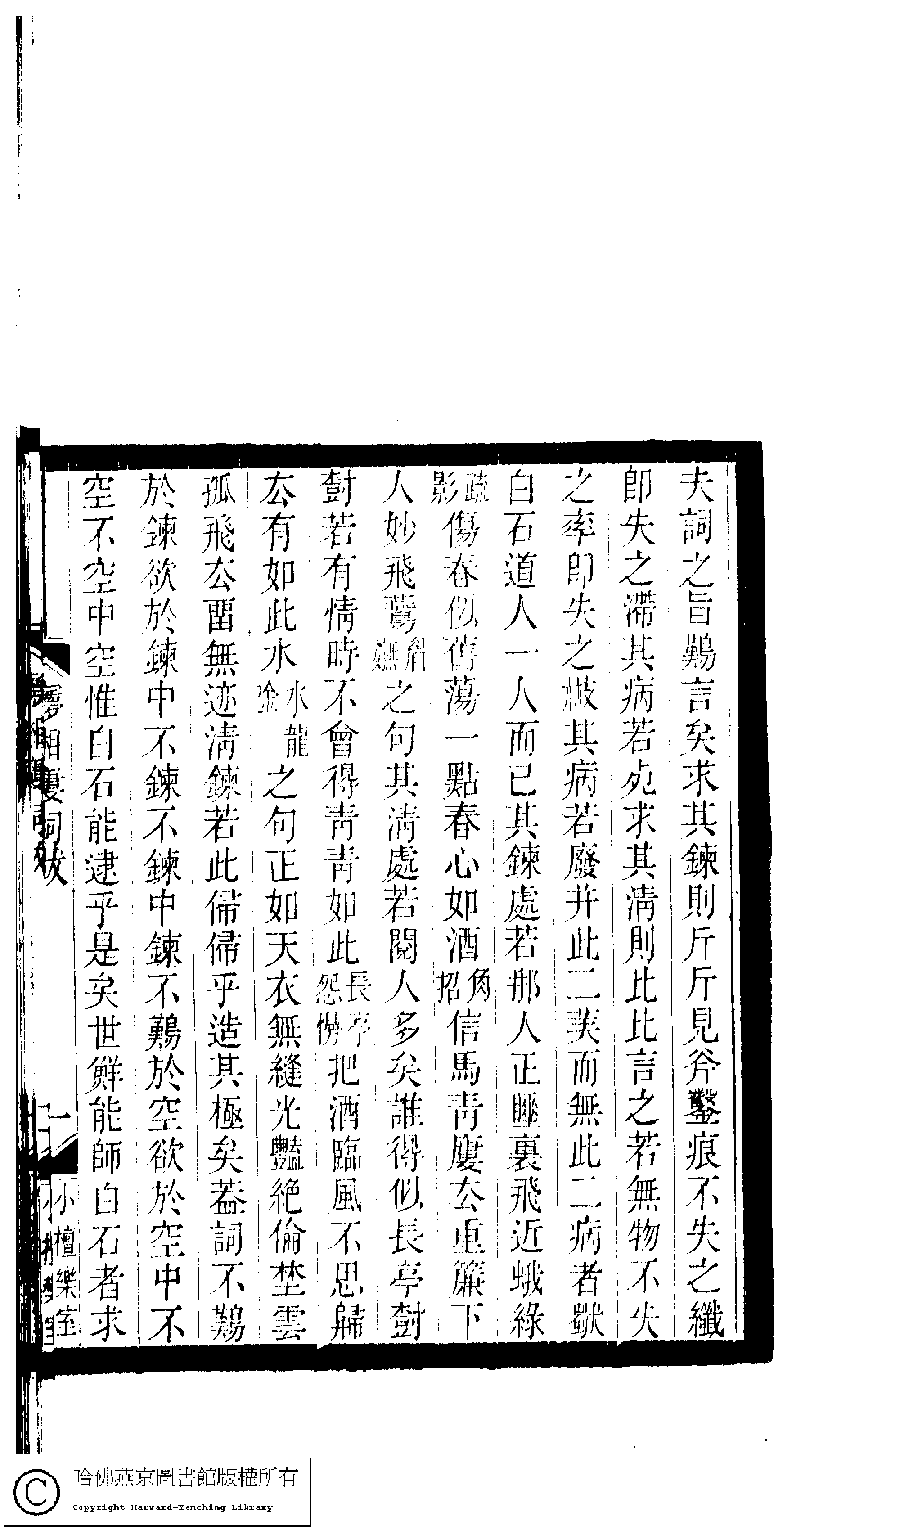 夫詞之旨鷬言矣求其鍊則斤斤見斧鑿痕不失之纖
卽失之滯其病若㱠求其清則比比言之若無物不失
之率卽失之獃其病若廢井此二美而無此二病者歟
白石道人一人而已其鍊處若那人正睡裏飛近蛾綠
疏影傷春似舊蕩一點春心如酒角招信馬青廔去重簾下
人妙飛鶯之句其清處若閱人多矣誰得似長亭尌
尌若有情時不會得青青如此長亭怨慢把酒臨風不思歸
去有如此水水龍唫之句正如天衣無縫光豔絶倫埜雲
孤飛去畱無迹清鍊若此偁偁乎造其極矣葢詞不鷬
於鍊欲於鍊中不鍊不鍊中鍊不鷬於空欲於空中不
空不空中空惟白石能逮乎是矣世鮮能師白石者求
小檀欒室
哈佛燕京圖書館版權所有
Copyright Harvard-Yenching Library